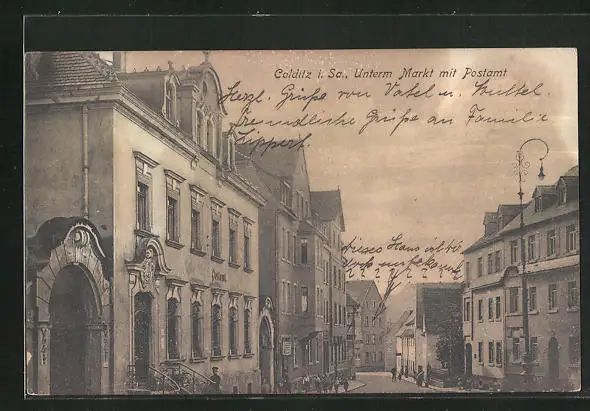 Colditz i. Sa., Unterm Markt mit Postamt
Herzl. Grüße von Vatel u. Muttel.
Freundliche Grüße an Familie
Lippert.
dieses Haus